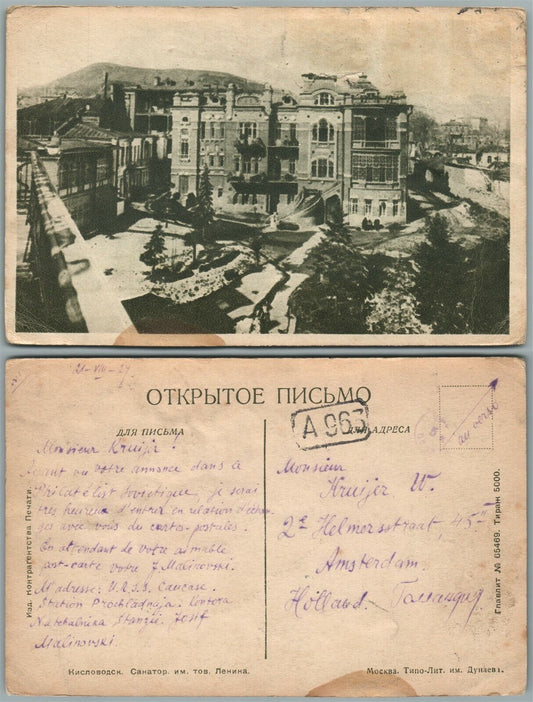 21-VIII-27
ОТКРЫТОЕ ПИСЬМО
ДЛЯ ПИСЬМА
ДЛЯ АДРЕСА
A 963
au verso
Monsieur Kruijer!
Ayant vu votre annonce dans le
Philatélist Sovietique, je serai
très heureux d'entrer en relation d'échan-
ges avec vous du cartes-postales.
En attendant de votre aimable
post-carte votre J Malinovski.
M adresse: U.R.S.S. Caucase.
Station Prochladnaja. Contora
Natchalnika Stanzii. Josif
Malinovski.
Monsieur
Kruijer W.
2e Helmersstraat, 45
Amsterdam.
Holland. Голландия
Изд. Контрагентства Печати.
Главлит № 65469. Тираж 5000.
Кисловодск. Санатор. им. тов. Ленина.
Москва. Типо-Лит. им. Дунаева.